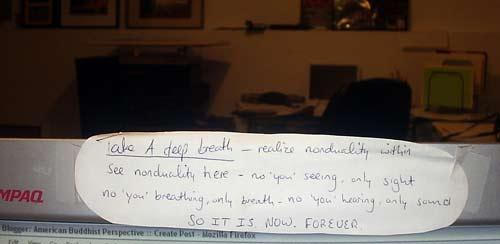 Take A deep breath – realize nonduality within
See nonduality here – no 'you' seeing, only sight
no 'you' breathing, only breath – no 'you' hearing, only sound
SO IT IS. NOW. FOREVER.
MPAQ
Blogger: American Buddhist Perspective :: Create Post - Mozilla Firefox